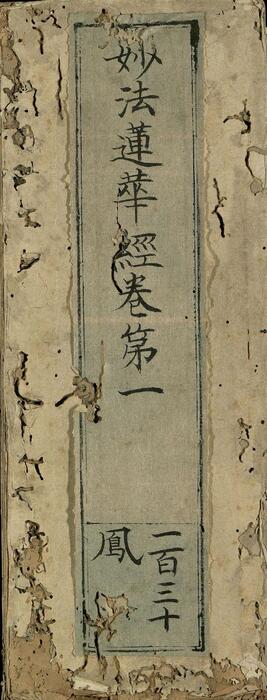 妙法蓮華經卷第一
一百三十
鳳